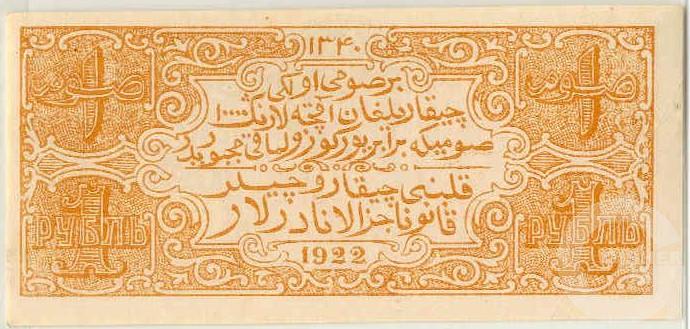 ١٣٤٠
١ صوم
١ صوم
بر صومی اولکی
چیقاریلغان اقچه لارنڭ ١٠٠٠٠
صومیکه برابر یورکوزولیاقی مجبوری در
قلبنی چیقاروچیلر
قانونا جزالانادرلار
1922
1 РУБЛЬ
1 РУБЛЬ